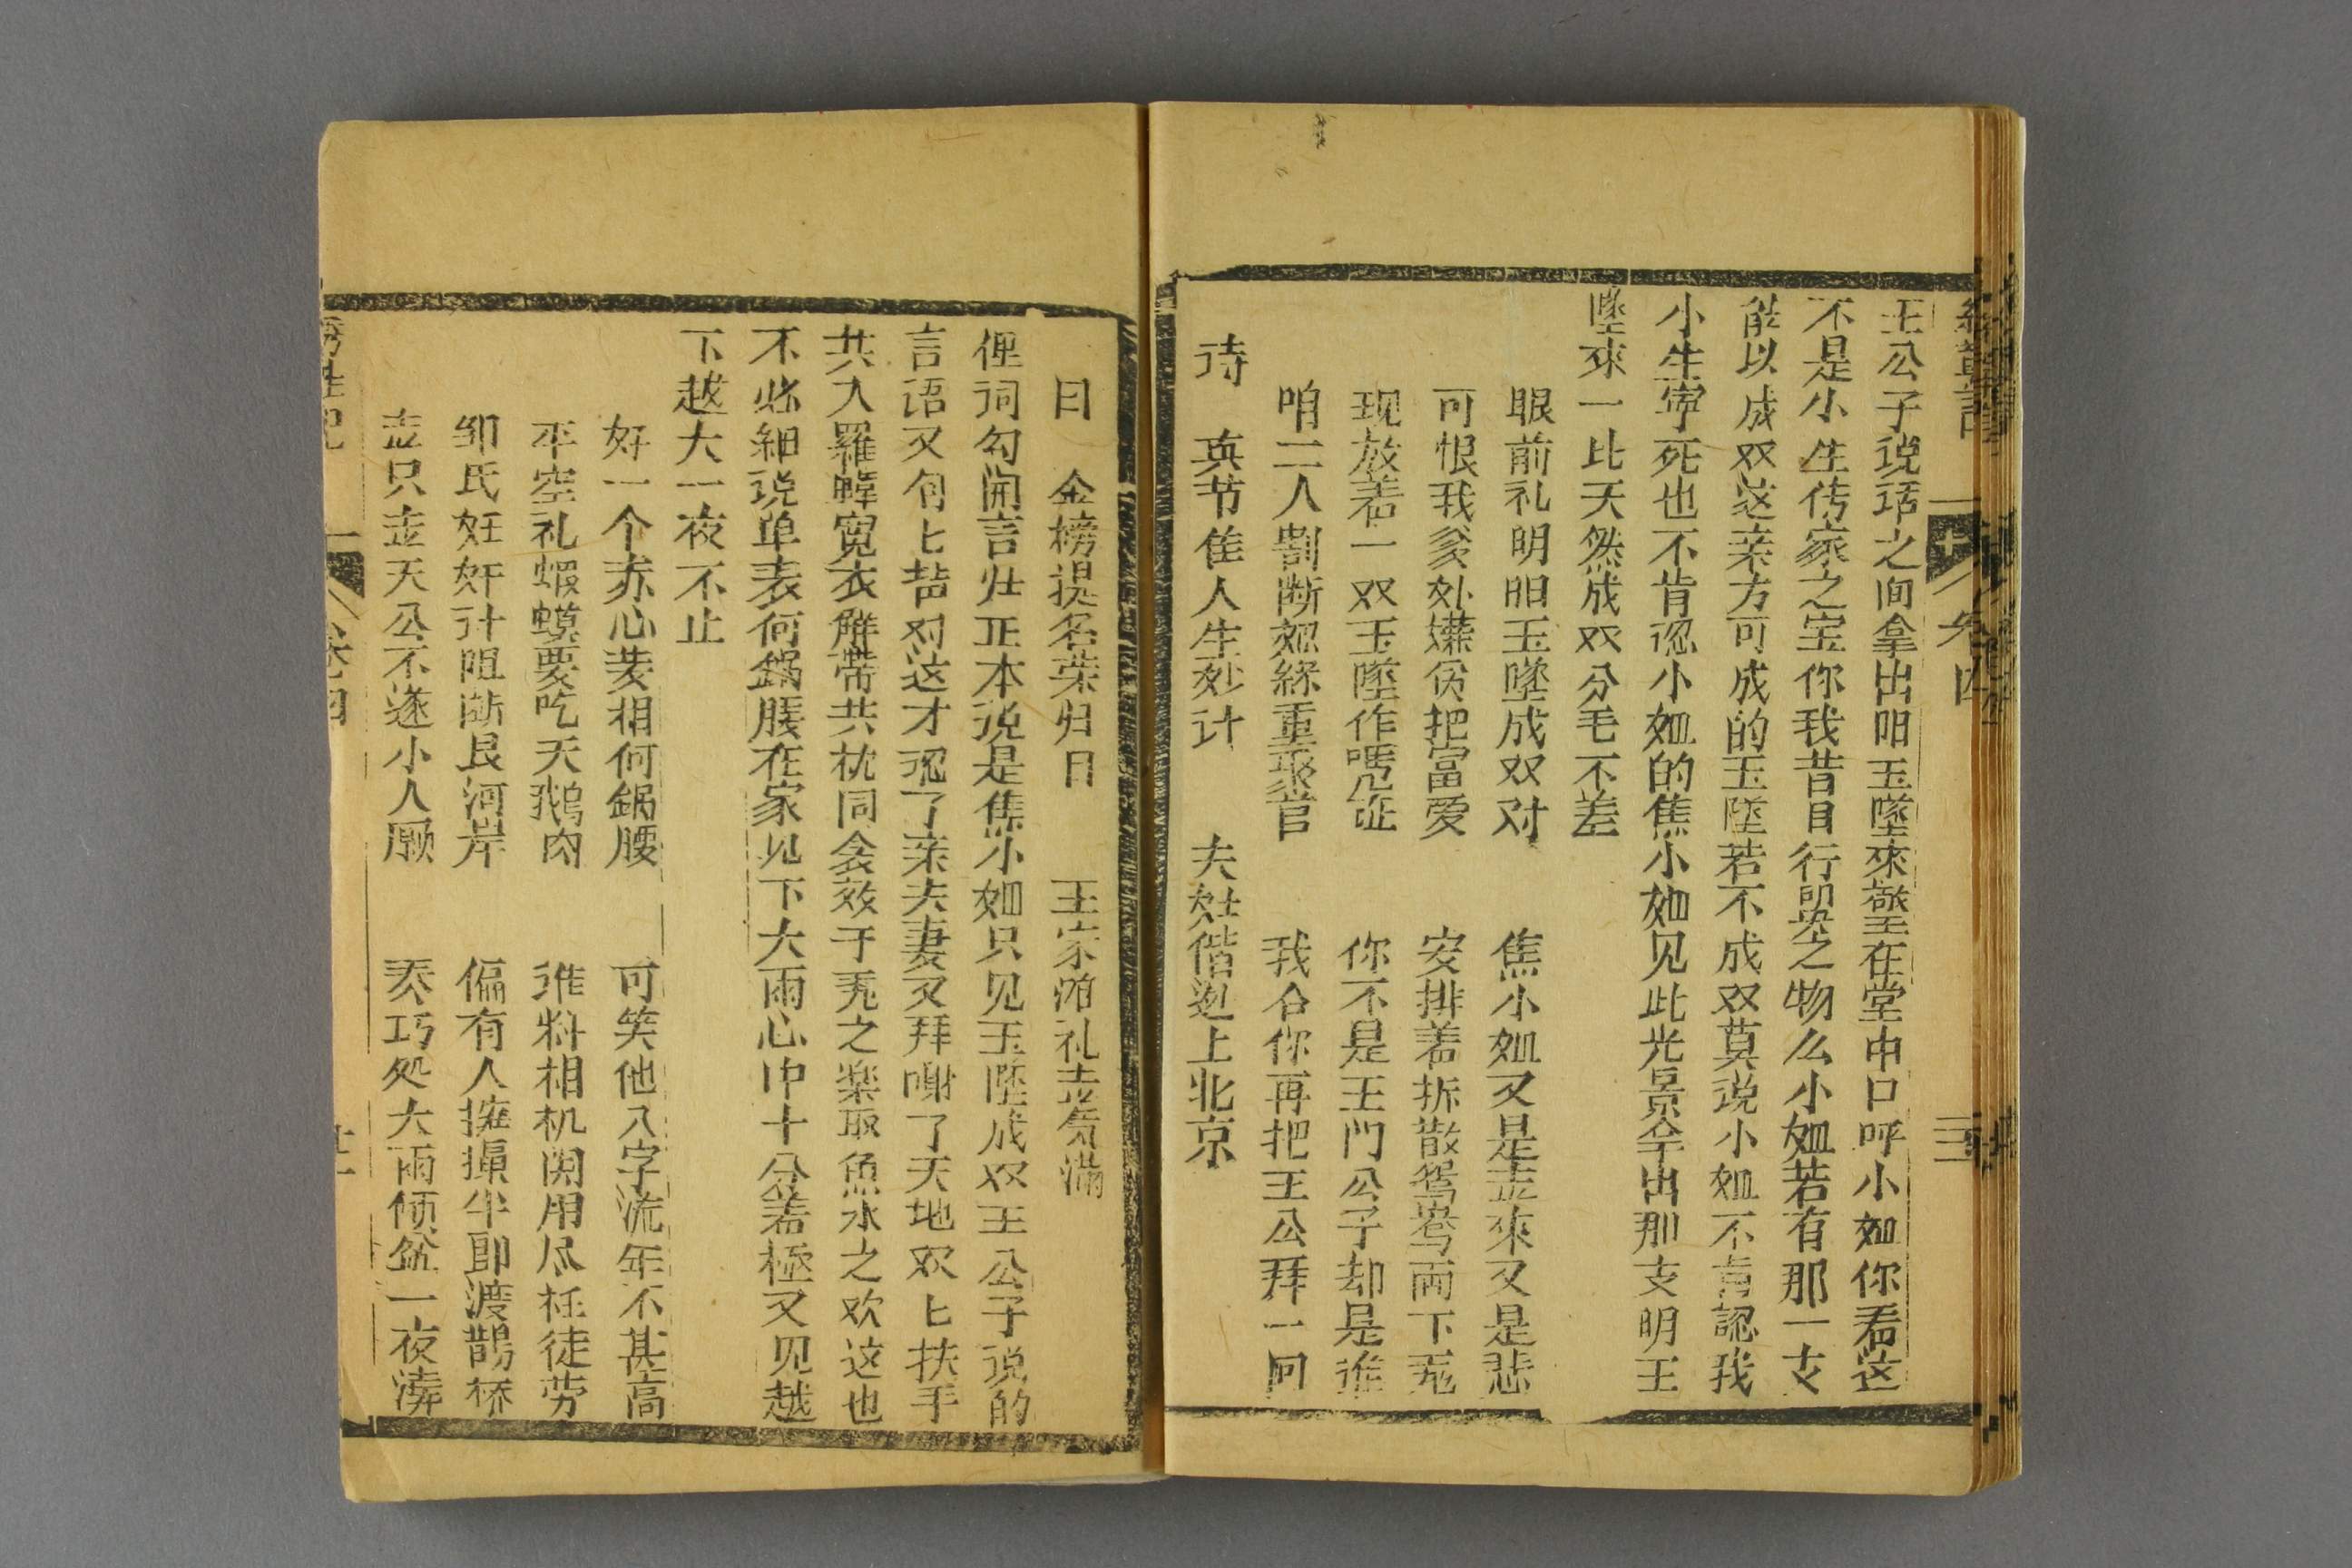 王公子说话之间拿出阳玉墜來擎在堂中口呼小姐你看这
不是小生传家之宝你我昔日行聘之物么小姐若有那一支
能以成双这亲方可成的玉墜若不成双莫说小姐不肯認我
小生寜死也不肯認小姐的焦小姐见此光景伞出那支明王
墜來一比天然成双分毛不差
眼前礼明阳玉墜成双对 焦小姐又是走來又是悲
可恨我爹处嫌贫把富爱 安排着拆散鸳鸯两下悲
现放着一双玉墜作凴证 你不是王门公子却是谁
咱二人割断姻緣重聚首 我合你再把王公拜一回
诗 真节佳人生妙计 夫妻偕迯上北京
曰 金榜提名荣归日 王家浦礼壴氣满
俚词勾開言灶正本说是焦小姐只见玉墜成双王公子说的
言语又句匕皆对这才现了亲夫妻又拜谢了天地双匕扶手
共入羅幃寛衣解帶共枕同衾效于飞之楽取魚水之欢这也
不必細说单表何鍋腰在家见下大雨心中十分着極又见越
下越大一夜不止
好一个赤心羙相何鍋腰 可笑他八字流年不甚高
平空礼蝦蟆要吃天鹅肉 谁料相机関用尽枉徒劳
邹氏妊奸计阻断艮河岸 偏有人撺掇牛郎渡鵲桥
走只走天公不遂小人愿 奏巧処大雨倾盆一夜澇